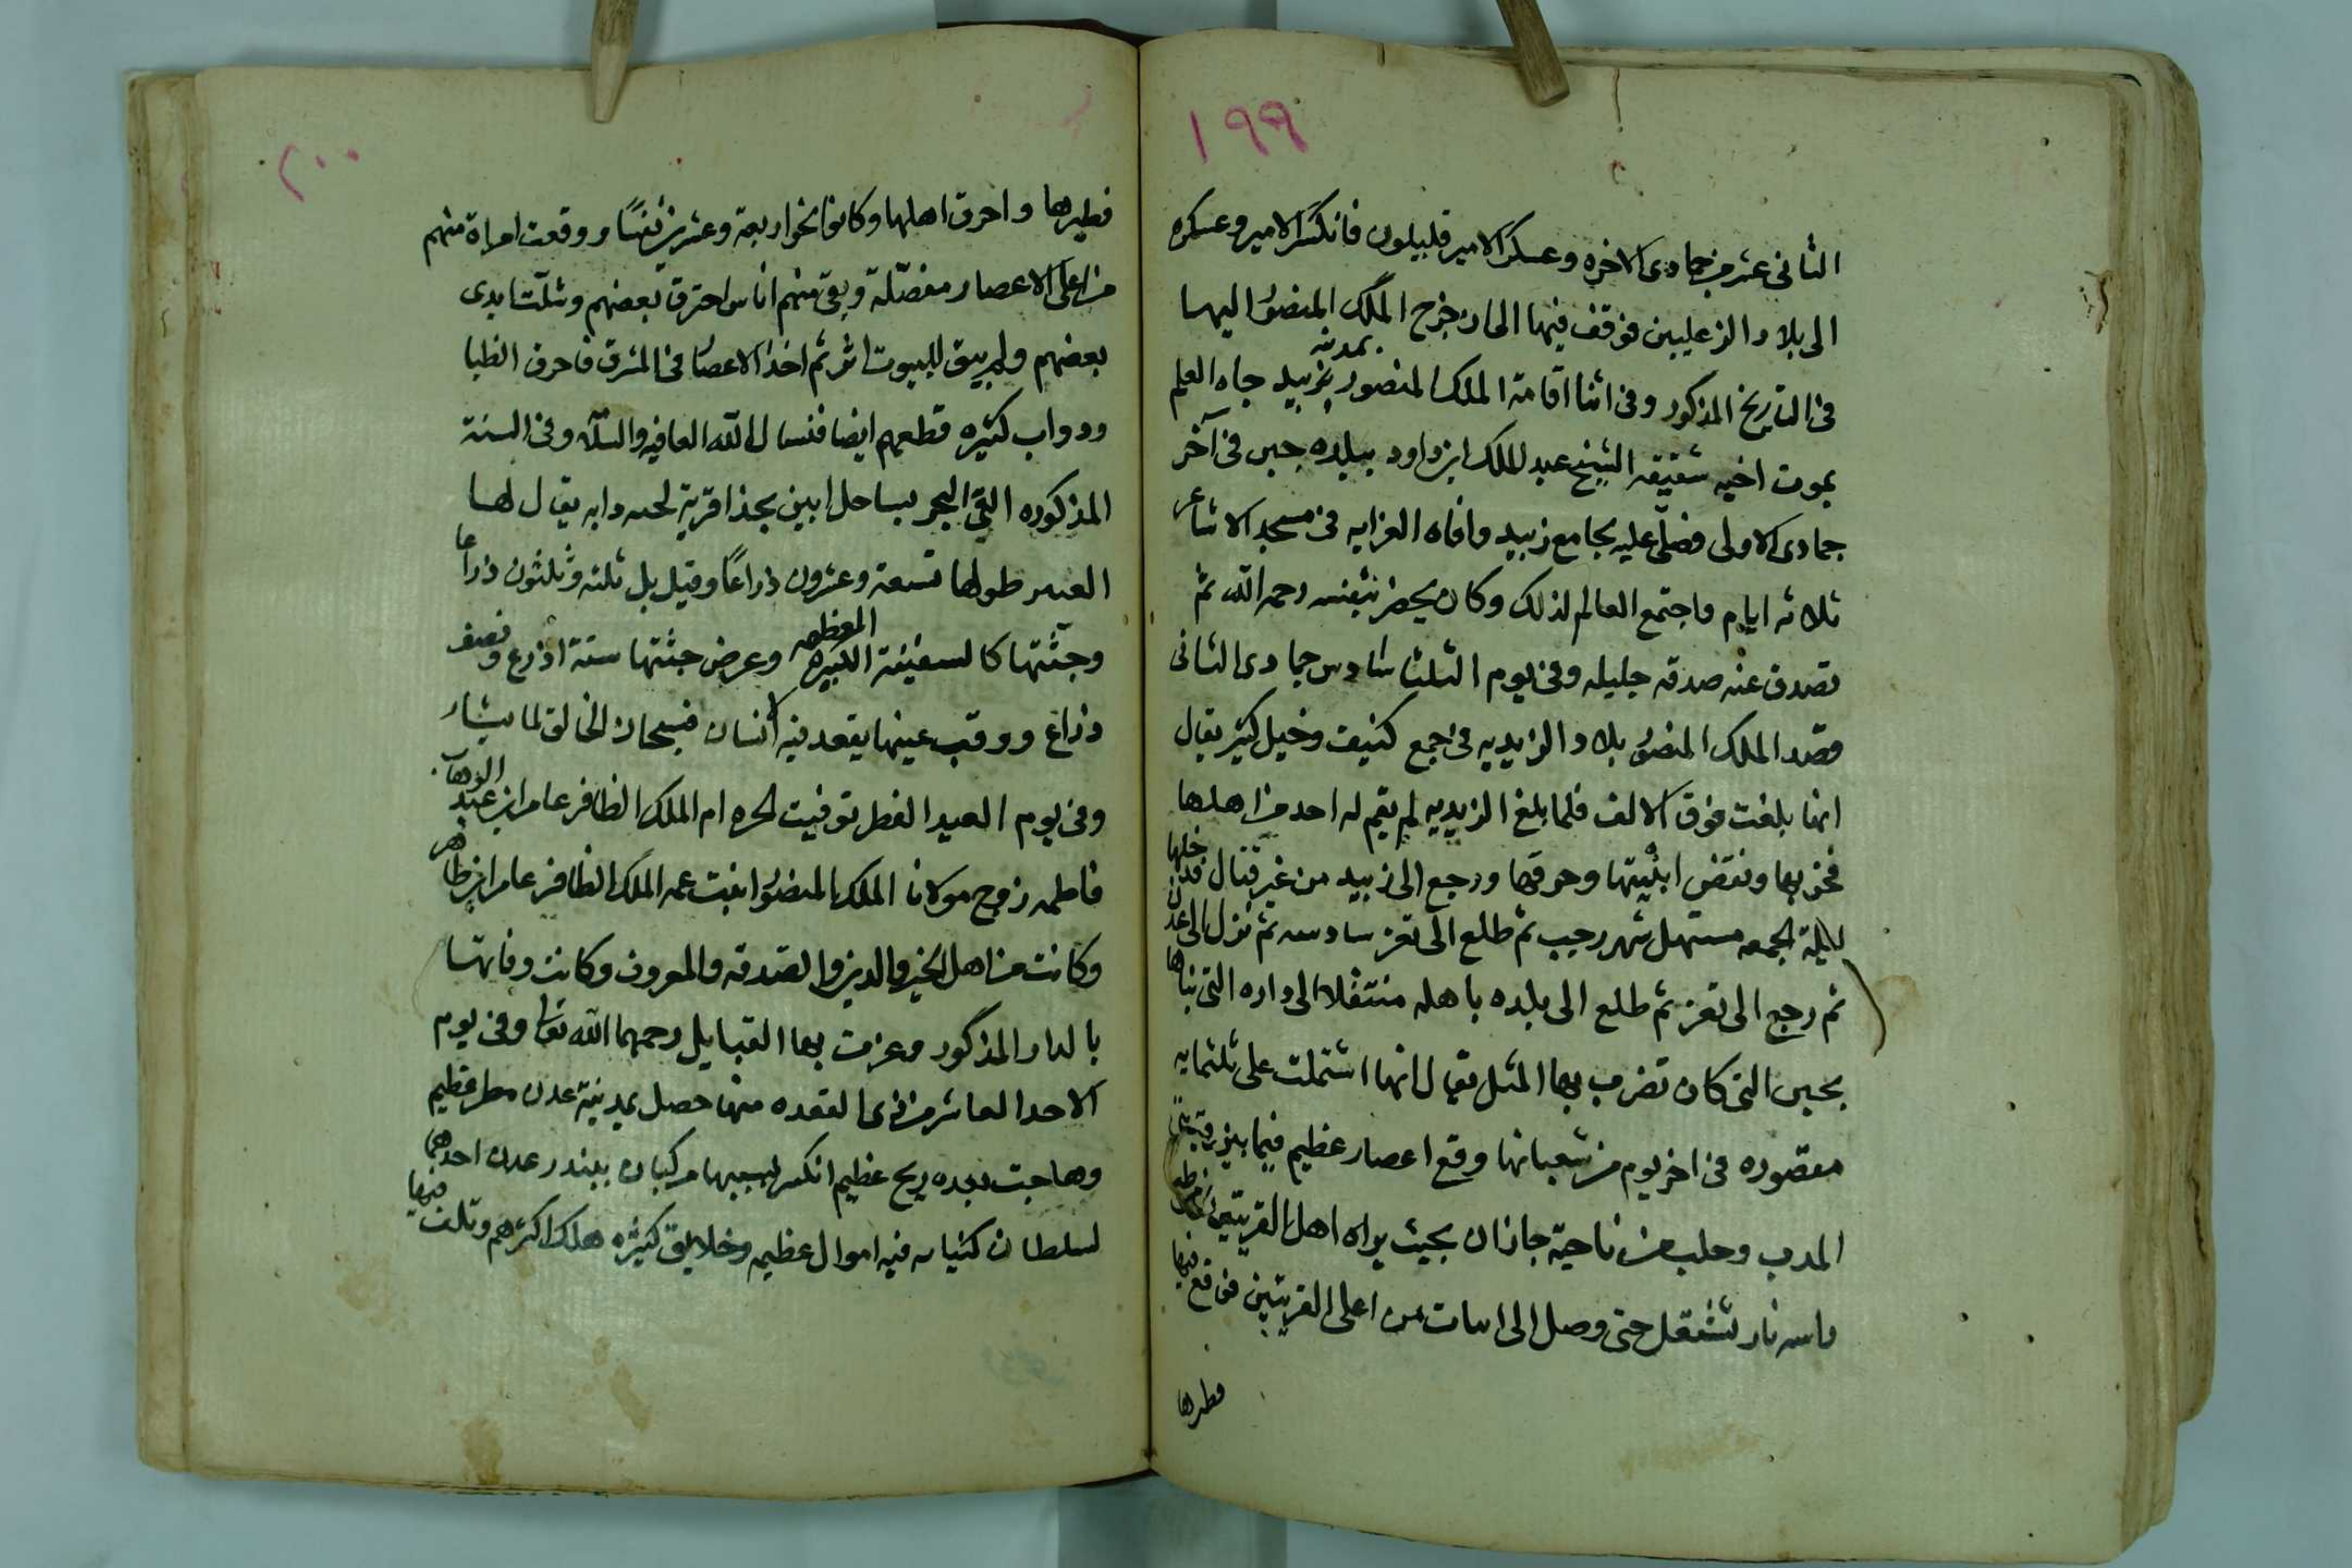 ١٩٩
الثانى عشر من جمادى الاخره وعسكر الامير قليلون فانكسر الامير وعسكره
الى بلاد الزعليين فوقف فيها الى ان خرج الملك المنصور اليها
فى التاريخ المذكور وفى اثنا اقامة الملك المنصور بمدينه زبيد جاه العلم
بموت اخيه شقيقه الشيخ عبد الملك ابن داود ببلده جبن فى آخر
جمادى الاولى فصلى عليه بجامع زبيد واقاه القرايه فى مسجد الاشاعر
ثلاثه ايام واجتمع العالم لذلك وكان يحضر بنفسه رحمه الله ثم
تصدق عنه صدقه جليله وفى يوم الثلثا سادس جمادى الثانى
قصد الملك المنصور بلاد الزيديه فى جمع كثيف وخيل كثير يقال
انها بلغت فوق الالف فلما بلغ الزيديه لم يقم له احد من اهلها
فخربها ونقض ابنيتها وحرقها ورجع الى زبيد من غير قتال فدخلها
ليلة الجمعه مستهل شهر رجب ثم طلع الى تعز سادسه ثم نزل الى عدن
ثم رجع الى تعز ثم طلع الى بلده باهله منتقلا الى داره التى بناها
بجبن التى كان تضرب بها المثل يقال انها اشتملت على ثلثمايه
مقصوره فى اخر يوم من شعبانها وقع اعصار عظيم فيما بين قريتى
المدب وحلب من ناحية جازان بحيث يراه اهل القريتين
راسه نار تشتعل حتى وصل الى ابيات من اعلى القريتين فوقع فيها
فطيرها
٢٠٠
فطيرها واحرق اهلها وكانوا نحو اربعة وعشرين نفسًا ووقعت امراة منهم
من اعلى الاعصار مفصّلة وبقى منهم اناس احترق بعضهم وشلّت ايدى
بعضهم ولم يبق للبيوت اثر ثم اخذ الاعصار فى المشرق فاحرق الظبا
ودواب كثيره قطعهم ايضا فنسال الله العافيه والسلامه وفى السنة
المذكوره القى البحر بساحل ابين بحذا قرية لحبه دابه يقال لها
العنبر طولها تسعة وعشرون ذراعًا وقيل بل ثلثه وثلثون ذراعا
وجثّتها كالسفينة الكبيره المعظمه وعرض جثتها ستة اذرع ونصف
ذراع ووقب عينها يقعد فيه انسان فسبحان الخالق لما يشا
وفى يوم العيد الفطر توفيت الحره ام الملك الظافر عامر ابن عبد الوهاب
فاطمه زوج مولانا الملك المنصور ابنت عمه الملك الظافر عامر ابن طاهر
وكانت من اهل الخير والدين والصدقه والمعروف وكانت وفاتها
بالدار المذكور وعزت بها القبايل رحمها الله تعالى وفى يوم
الاحد العاشر من ذى القعده منها حصل بمدينة عدن مطر عظيم
وهاجت بعده ريح عظيم انكسر بسببها مركبان ببندر عدن احدهما
لسلطان كنبايه فيه اموال عظيمه وخلايق كثيره هلك اكثرهم وتلف فيها